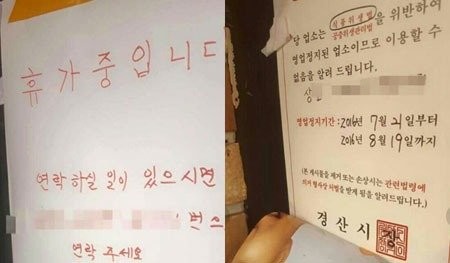 휴가중입니다
연락 하실 일이 있으시면
번으
연락 주세요
당 업소는 식품위생법 을 위반하여
공중위생관리법
영업정지된 업소이므로 이용할 수
없음을 알려 드립니다.
상
영업정지기간 : 2016년 7월 21일부터
2016년 8월 19일까지
(본 게시물을 제거 또는 손상시는 관련법령에
의거 형사상 처벌을 받게 됨을 알려드립니다.)
경 산 시 장